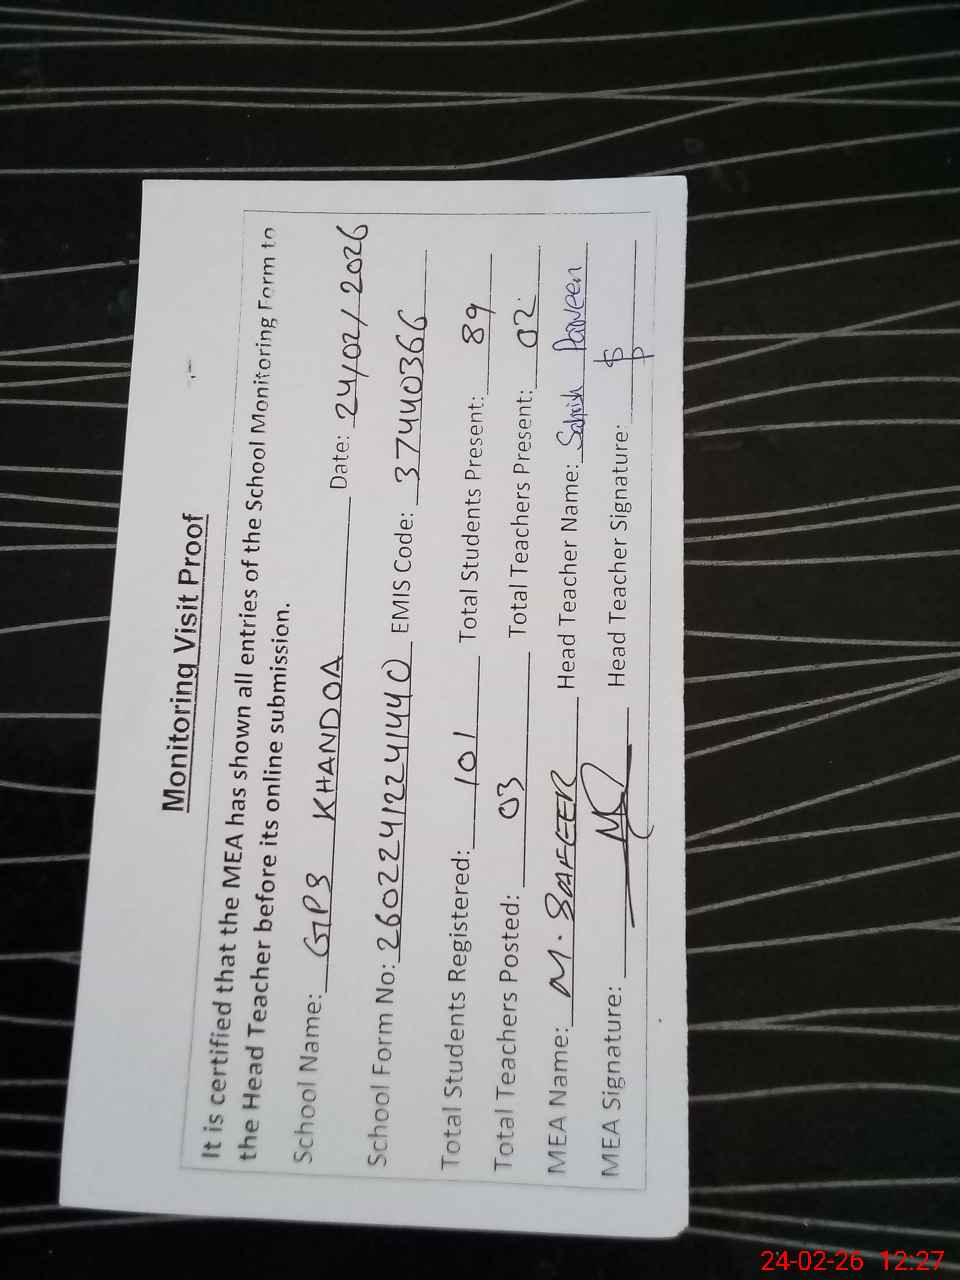 Monitoring Visit Proof
It is certified that the MEA has shown all entries of the School Monitoring Form to
the Head Teacher before its online submission.
School Name: GPS KHANDOA Date: 24/02/2026
School Form No: 260224122241440 EMIS Code: 37440366
Total Students Registered: 101 Total Students Present: 89
Total Teachers Posted: 03 Total Teachers Present: 02
MEA Name: M. SAFEER Head Teacher Name: Sabish Parveen
MEA Signature: Head Teacher Signature:
24-02-26 12:27